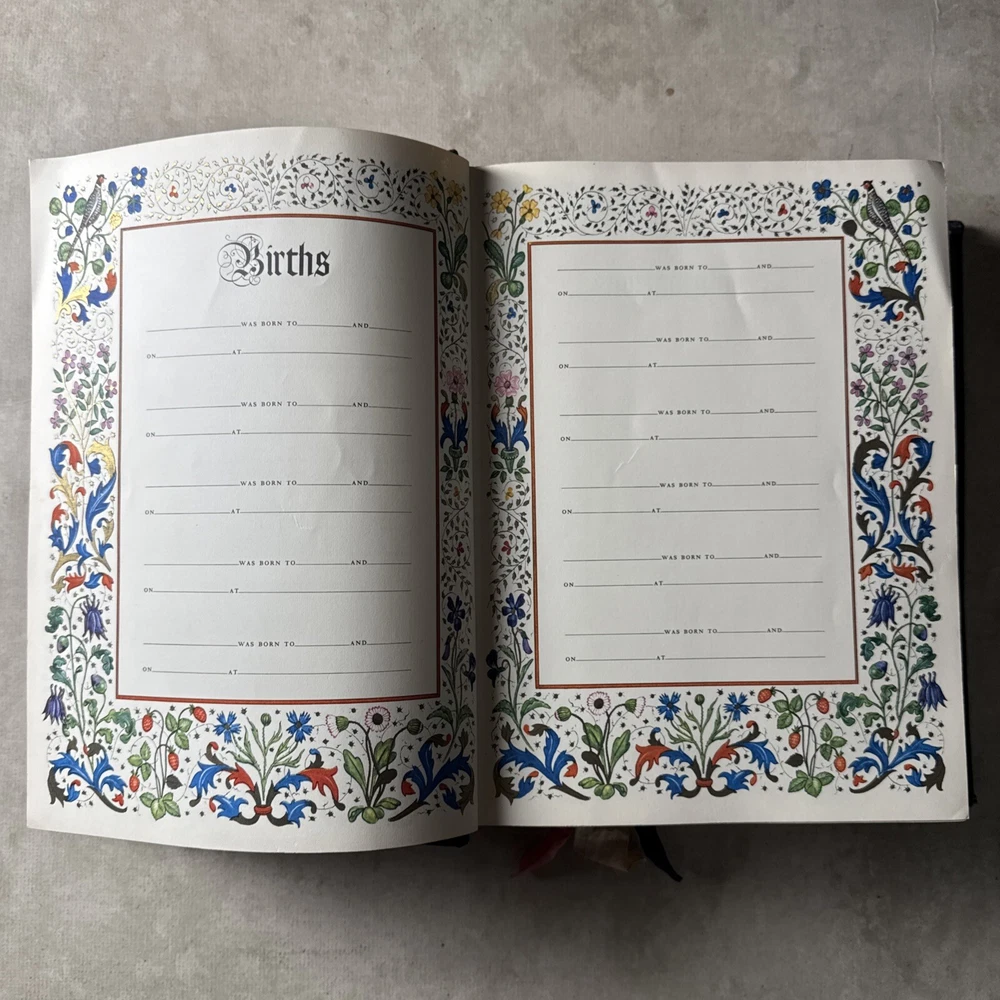 Births
WAS BORN TO AND
ON AT
WAS BORN TO AND
ON AT
WAS BORN TO AND
ON AT
WAS BORN TO AND
ON AT
WAS BORN TO AND
ON AT
WAS BORN TO AND
ON AT
WAS BORN TO AND
ON AT
WAS BORN TO AND
ON AT
WAS BORN TO AND
ON AT
WAS BORN TO AND
ON AT
WAS BORN TO AND
ON AT